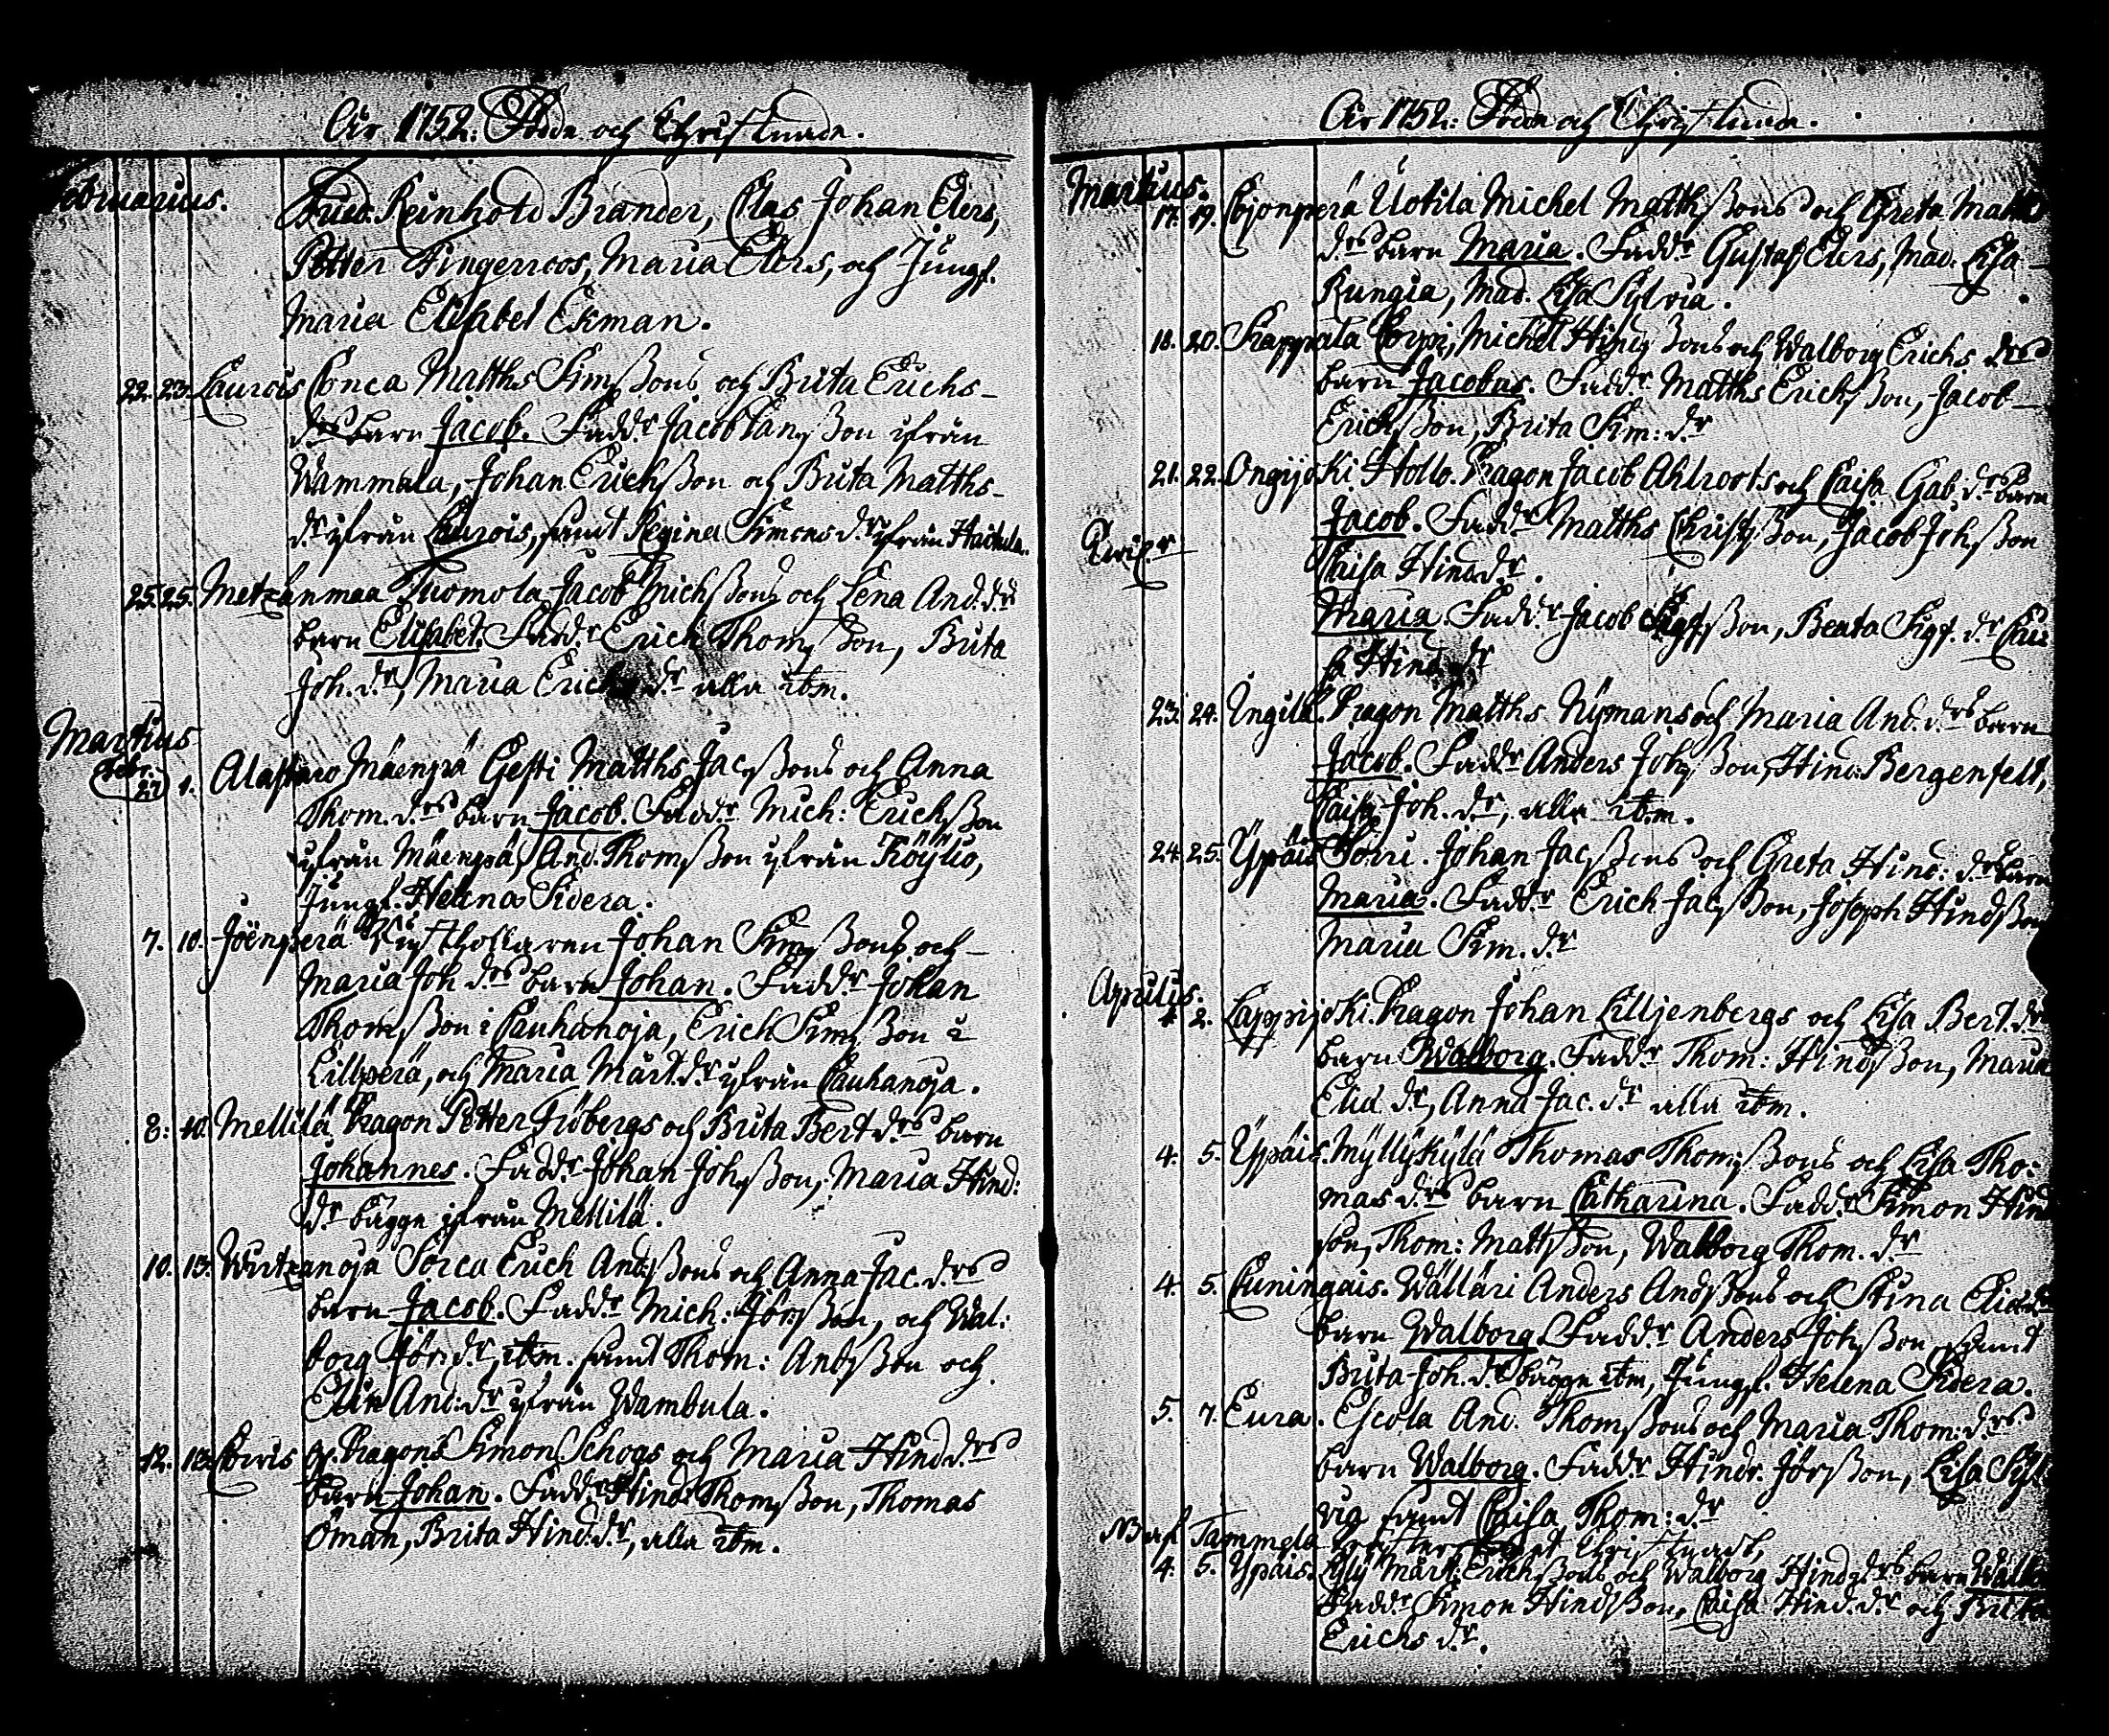 Åhr 1752. Födde och Christnade.
Februarius. Fried. Reinhold Brander, Clas Johan Elers,
Petter Fingerroos, Maria Elers, och Jungf.
Maria Elisabet Ekman.
22. 23. Laurois Conca Matths Simßons och Brita Erichs-
drs barn Jacob. Faddr Jacob ßon ifrån
Wammala, Johan Erichßon och Brita Matths-
dr ifrån Laurois, samt Regina Simons dr ifrån
25. 25. Metzänmaa Tuomola Jacob Michßons och Lena And. drs
barn Elisabet. Faddr Erich Thomßon, Brita
Joh. dr, Maria Erichs dr alla ibm.
Martius
Febr.
27 1. Alastaro Mäenpä Gesti Matths Jacßons och Anna
Thom. drs barn Jacob. Faddr Mich: Erichßon
ifrån Mäenpä, And. Thomßon ifrån Köyliö,
Jungf. Helena Sidera.
7. 10. Joenperä Rusthollaren Johan Simßons och
Maria Joh drs barn Johan. Faddr Johan
Thomßon i Cauhanoja, Erich Simßon i
Lillperä, och Maria Märt. dr ifrån Cauhanoja.
8. 10. Mellilä Dragon Petter Fröbergs och Brita Bert drs barn
Johannes. Faddr Johan Johßon, Maria Hind:
dr bägge ifrån Mellilä.
10. 13. Wirtzanoja Sorca Erich Andßons och Anna Jac. drs
barn Jacob. Faddr Mich: Jörßon, och Wal:
borg Jör: dr, ibm. samt Thom: Andßon och
Elin And: dr ifrån Wambula.
12. 13. Loris Dragons Simon Schogs och Maria Hind. drs
barn Johan. Faddr Hind: Thomßon, Thomas
Öman, Brita Hind: dr, alla ibm.
Åhr 1752. Födde och Christnade.
Martius.
17. 19. Cojonperä Uotila Michel Matthßons och Greta Matths
drs barn Maria. Faddr Gustaf Elers, Mad. Lisa
Rungia, Mad. Lisa Sylvia.
18. 20. Korpi, Michel Hindßons och Walborg Erichs drs
barn Jacobus. Faddr Matths Erichßon, Jacob
Erichßon, Brita Sim: dr
21. 22. Ongijoki Hollo. Dragon Jacob Ahlroots och Caisa Gab. drs barn
Jacob. Faddr Matths Christßon, Jacob Johßon
Caisa Hindr dr.
Maria. Faddr Jacob Sigfßon, Beata Sigf. dr Cai
sa Hind dr
23. 24. Ungila. Dragon Matths Nymans och Maria And. drs barn
Jacob. Faddr Anders Johßon, Hind: Bergenfelt,
Caisa Joh. dr, alla ibm.
24. 25. Ypäis Sorri. Johan Jacßons och Greta Hind: drs barn
Maria. Faddr Erich Jacßon, Joseph Hindßon
Maria Sim. dr
Aprilis.
1. 2. Lappijoki. Dragon Johan Lilljenbergs och Lisa Bert. drs
barn Walborg. Faddr Thom: Hindßon, Maria
Elia dr, Anna Jac. dr alla ibm.
4. 5. Ypäis. Myllykylä Thomas Thomßons och Lisa Tho-
mas drs barn Catharina. Faddr Simon Hind
son, Thom: Mattßon, Walborg Thom. dr
4. 5. Cuningais. Wälläri Anders Andßons och Stina Elia drs
barn Walborg. Faddr Anders Johßon samt
Brita Joh. dr bägge ibm, Jungf. Helena Sidera.
5. 7. Eura. Escola And. Thomßons och Maria Thom: drs
barn Walborg. Faddr Hindr. Jörßon, Lisa
samt Caisa Thom: dr
Tammela Christnadt,
4. 5. Ypäis. Märt. Erichßons och Walborg Hind: drs barn
Faddr Simon Hindßon, Caisa Hind. dr och Brita
Erichs dr.